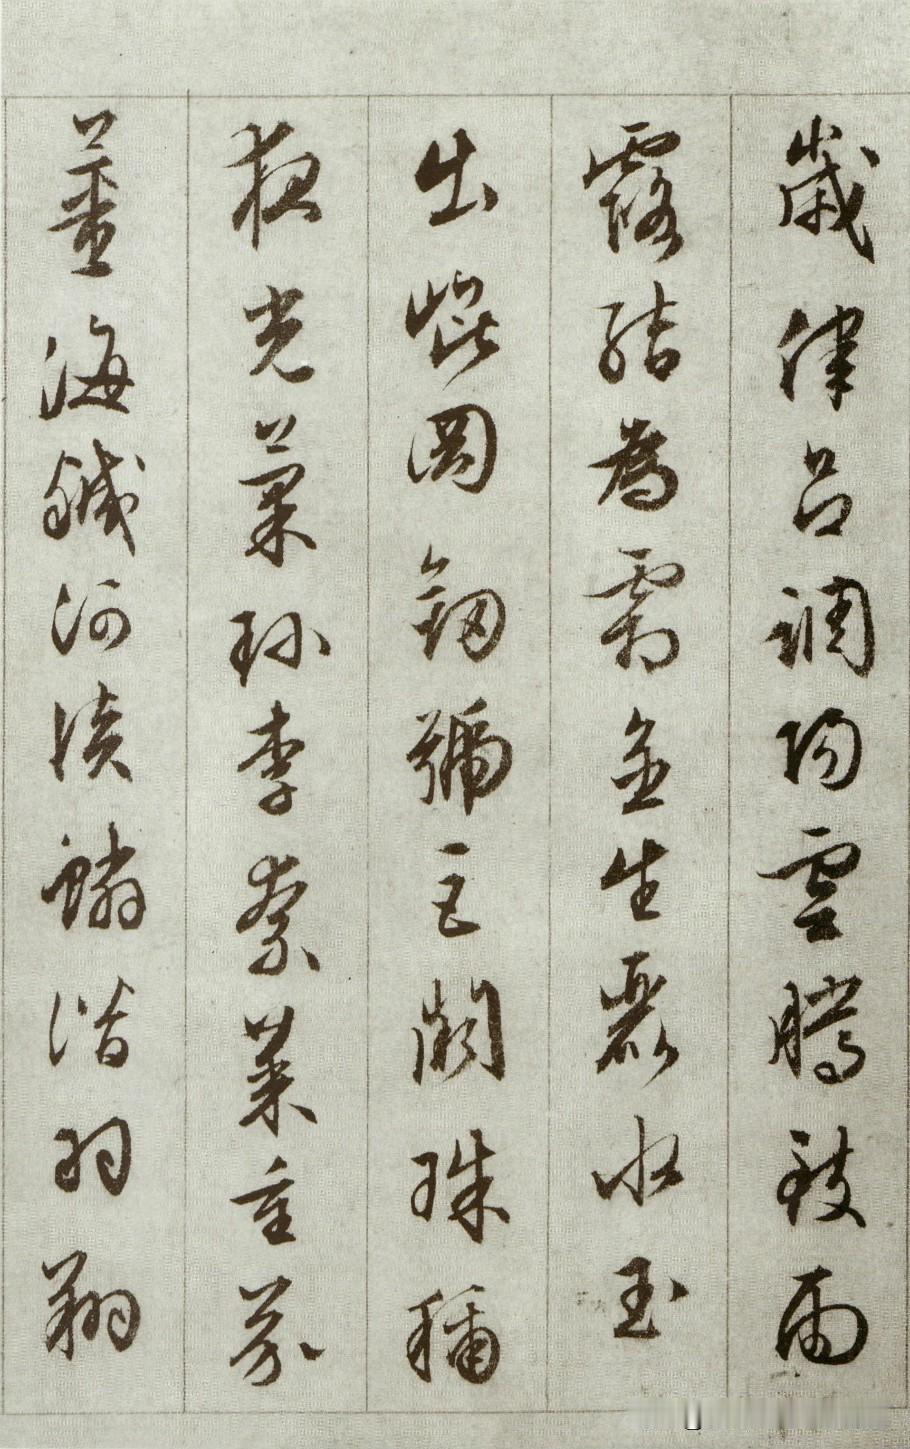 歲律呂調陽雲騰致雨
露結為霜金生麗水玉
出崐岡劍號巨闕珠稱
夜光菓珍李柰菜重芥
薑海鹹河淡鱗潛羽翔